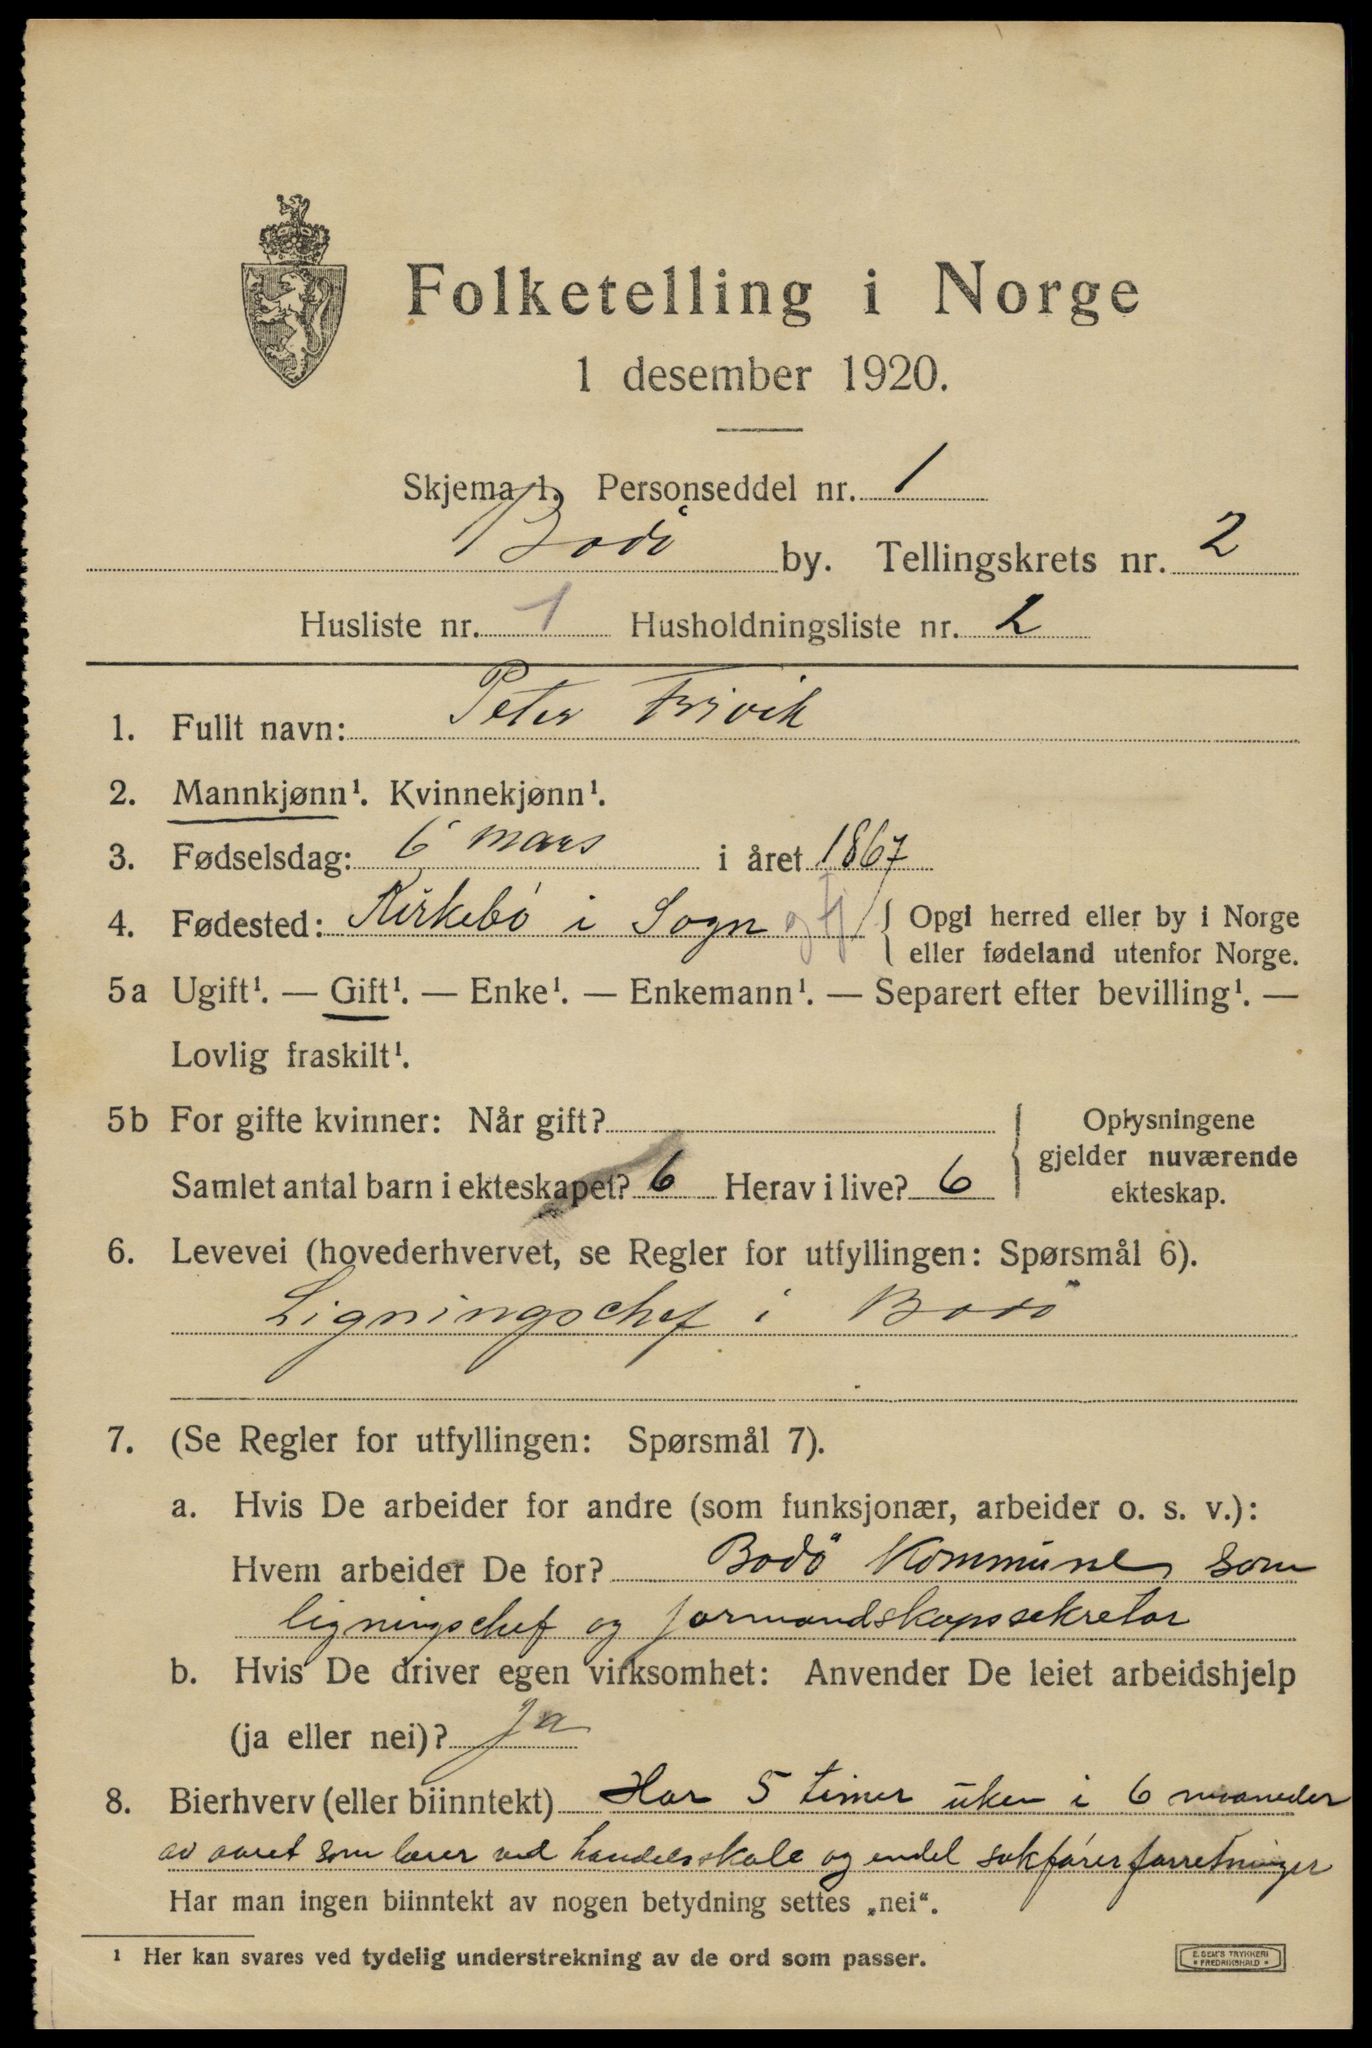 Folketelling i Norge
1 desember 1920.
Skjema 1. Personseddel nr. 1
Bodö by. Tellingskrets nr. 2
Husliste nr. 1 Husholdningsliste nr. 2
1. Fullt navn: Peter
2. Mannkjønn¹. Kvinnekjønn¹.
3. Fødselsdag: 6 mars i året 1867
4. Fødested: Kirkebö i Sogn og fj { Opgi herred eller by i Norge
eller fødeland utenfor Norge.
5a Ugift¹. — Gift¹. — Enke¹. — Enkemann¹. — Separert efter bevilling¹. —
Lovlig fraskilt¹.
5b For gifte kvinner: Når gift? { Oplysningene
gjelder nuværende
Samlet antal barn i ekteskapet? 6 Herav i live? 6
ekteskap.
6. Levevei (hovederhvervet, se Regler for utfyllingen: Spørsmål 6).
Ligningschef i Bodö
7. (Se Regler for utfyllingen: Spørsmål 7).
a. Hvis De arbeider for andre (som funksjonær, arbeider o. s. v.):
Hvem arbeider De for? Bodö Kommune som
ligningschef og formandskapssekretær
b. Hvis De driver egen virksomhet: Anvender De leiet arbeidshjelp
(ja eller nei)? ja
8. Bierhverv (eller biinntekt) Har 5 timer uken i 6 maaneder
av aaret som lærer ved handelsskole og endel sakförerforretninger
Har man ingen biinntekt av nogen betydning settes „nei“.
¹ Her kan svares ved tydelig understrekning av de ord som passer.
E. SEM'S TRYKKERI
* FREDRIKSHALD *